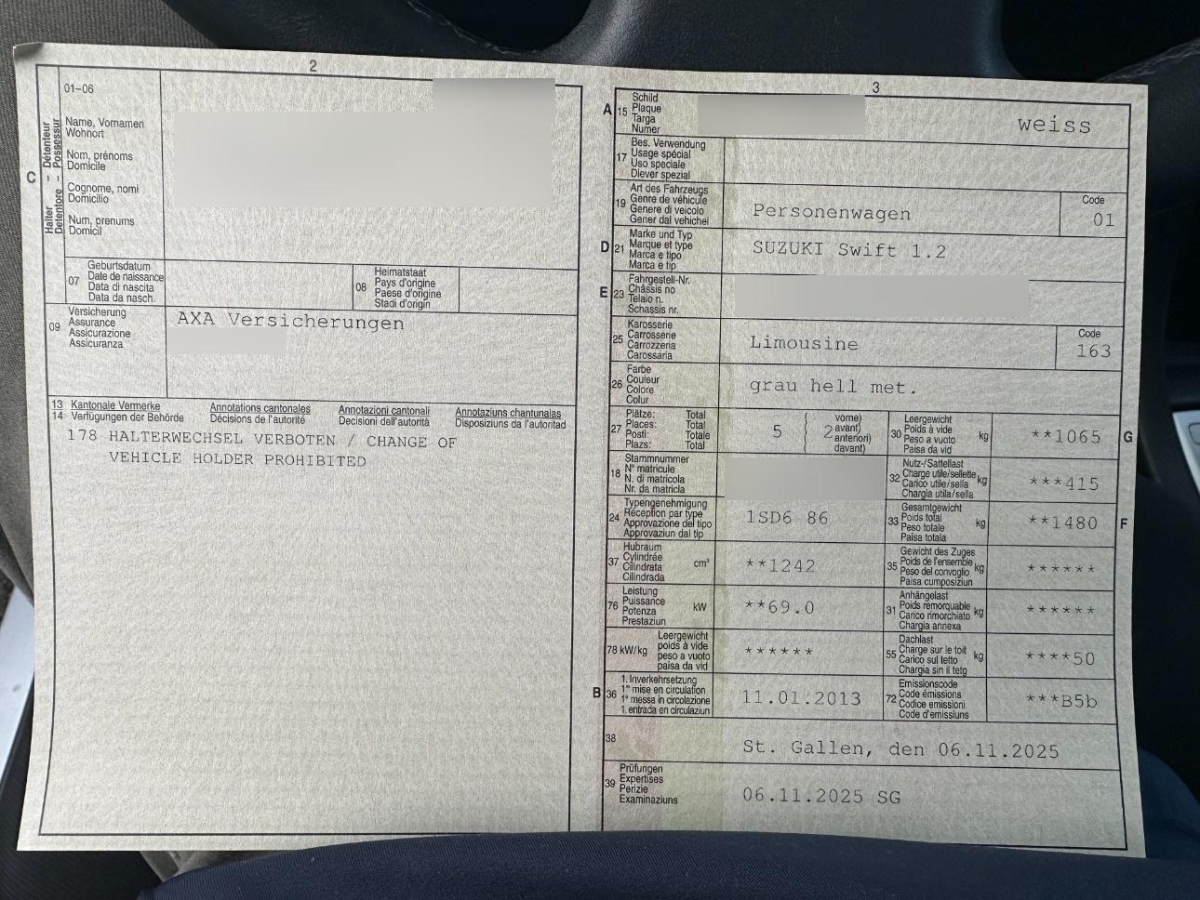 2
01–06
Name, Vornamen
Wohnort
Nom, prénoms
Domicile
Cognome, nomi
Domicilio
Num, prenums
Domicil
C
Halter – Détenteur
Detentore – Possessur
07
Geburtsdatum
Date de naissance
Data di nascita
Data da nasch.
08
Heimatstaat
Pays d'origine
Paese d'origine
Stadi d'origin
09
Versicherung
Assurance
Assicurazione
Assicuranza
AXA Versicherungen
13 Kantonale Vermerke Annotations cantonales Annotazioni cantonali Annotaziuns chantunalas
14 Verfügungen der Behörde Décisions de l'autorité Decisioni dell'autorità Disposiziuns da l'autoritad
178 HALTERWECHSEL VERBOTEN / CHANGE OF
VEHICLE HOLDER PROHIBITED
3
A 15
Schild
Plaque
Targa
Numer
weiss
17
Bes. Verwendung
Usage spécial
Uso speciale
Diever spezial
19
Art des Fahrzeugs
Genre de véhicule
Genere di veicolo
Gener dal vehichel
Personenwagen
Code
01
D 21
Marke und Typ
Marque et type
Marca e tipo
Marca e tip
SUZUKI Swift 1.2
E 23
Fahrgestell-Nr.
Châssis no
Telaio n.
Schassis nr.
25
Karosserie
Carrosserie
Carrozzeria
Carossaria
Limousine
Code
163
26
Farbe
Couleur
Colore
Colur
grau hell met.
27
Plätze: Total
Places: Total
Posti: Totale
Plazs: Total
5
2
vorne)
avant)
anteriori)
davant)
30
Leergewicht
Poids à vide
Peso a vuoto
Paisa da vid
kg
**1065
G
18
Stammnummer
N° matricule
N. di matricola
Nr. da matricla
32
Nutz-/Sattellast
Charge utile/sellette
Carico utile/sella
Chargia utila/sella
kg
***415
24
Typengenehmigung
Réception par type
Approvazione del tipo
Approvaziun dal tip
1SD6 86
33
Gesamtgewicht
Poids total
Peso totale
Paisa totala
kg
**1480
F
37
Hubraum
Cylindrée
Cilindrata
Cilindrada
cm³
**1242
35
Gewicht des Zuges
Poids de l'ensemble
Peso del convoglio
Paisa cumposiziun
kg
******
76
Leistung
Puissance
Potenza
Prestaziun
kW
**69.0
31
Anhängelast
Poids remorquable
Carico rimorchiato
Chargia annexa
kg
******
78 kW/kg
Leergewicht
poids à vide
peso a vuoto
paisa da vid
******
55
Dachlast
Charge sur le toit
Carico sul tetto
Chargia sin il tetg
kg
****50
B 36
1. Inverkehrsetzung
1re mise en circulation
1a messa in circolazione
1. entrada en circulaziun
11.01.2013
72
Emissionscode
Code émissions
Codice emissioni
Code d'emissiuns
***B5b
38
St. Gallen, den 06.11.2025
39
Prüfungen
Expertises
Perizie
Examinaziuns
06.11.2025 SG